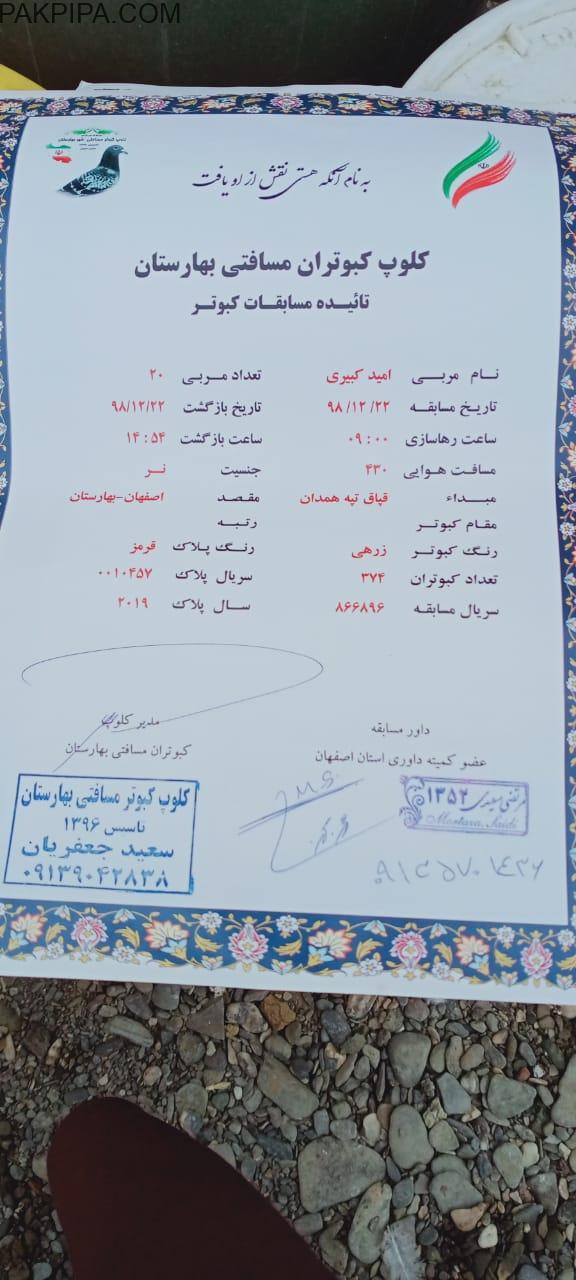 PAKPIPA.COM
به نام آنکه هستی نقش از او یافت
کلوپ کبوتران مسافتی بهارستان
تائیده مسابقات کبوتر
نام مربی امید کبیری تعداد مربی ۲۰
تاریخ مسابقه ۹۸/۱۲/۲۲ تاریخ بازگشت ۹۸/۱۲/۲۲
ساعت رهاسازی ۰۹:۰۰ ساعت بازگشت ۱۴:۵۴
مسافت هوایی ۴۳۰ جنسیت نر
مبداء قپاق تپه همدان مقصد اصفهان-بهارستان
مقام کبوتر رتبه
رنگ کبوتر زرهی رنگ پلاک قرمز
تعداد کبوتران ۳۷۴ سریال پلاک ۰۰۱۰۴۵۷
سریال مسابقه ۸۶۶۸۹۶ سال پلاک ۲۰۱۹
داور مسابقه
عضو کمیته داوری استان اصفهان
مدیر کلوپ
کبوتران مسافتی بهارستان
مرتضی سعیدی ۱۳۵۲
M.S.
کلوپ کبوتر مسافتی بهارستان
تاسیس ۱۳۹۶
سعید جعفریان
۰۹۱۳۹۰۴۲۸۳۸